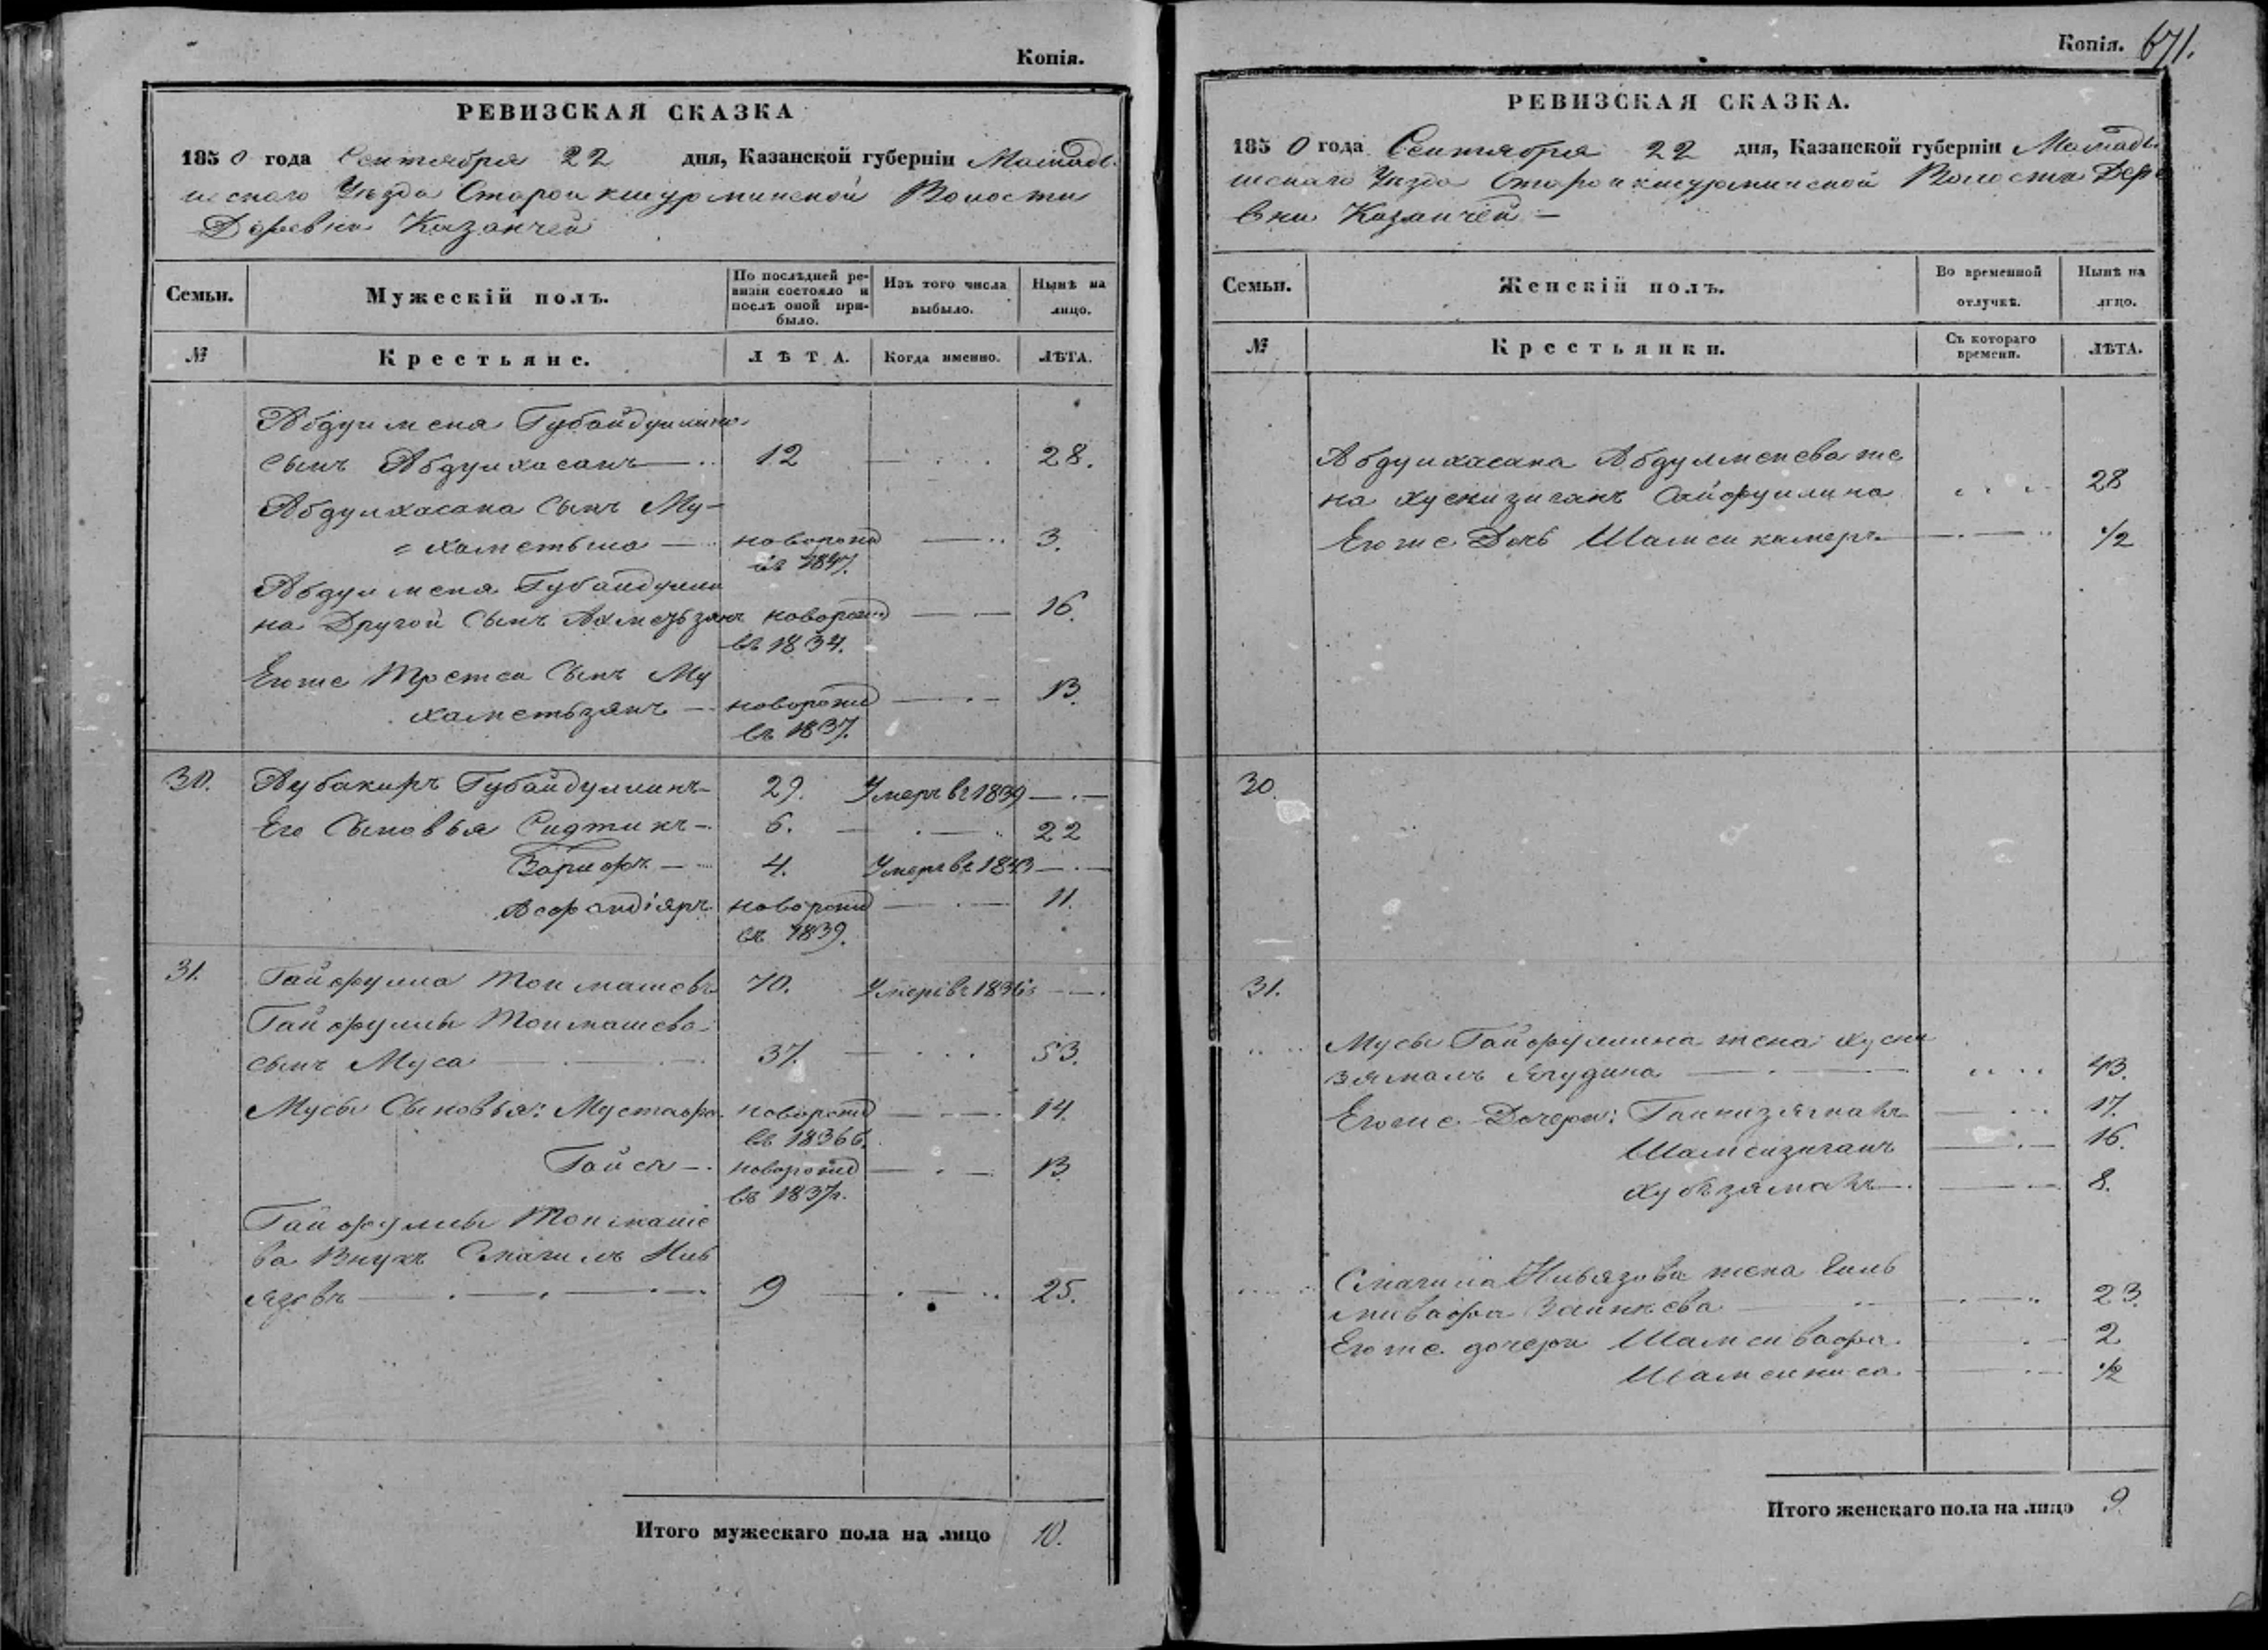 Копія.
РЕВИЗСКАЯ СКАЗКА
1850 года Сентября 22 дня, Казанской губерніи Мамады
шскаго Уезда Староикшурминской Волости
Деревни Казанчей
Семьи. Мужескій полъ. По послѣдней ре-
визіи состояло и
послѣ оной при-
было. Изъ того числа
выбыло. Нынѣ на
лицо.
№ Крестьяне. ЛѢТА. Когда именно. ЛѢТА.
Абдулмена Губайдуллина
сынъ Абдулхасанъ 12 28.
Абдулхасана сынъ Му-
=хаметьша новорожд 3.
въ 1847.
Абдулмена Губайдулли
на Другой сынъ Ахметьзянъ новорожд 16.
въ 1834.
Егоже Третій сынъ Му
хаметьзянъ новорожд 13.
въ 1837.
30. Аубакиръ Губайдуллинъ 29. Умеръ въ 1839
Его Сыновья Сиджикъ 6. 22
Зарифъ 4. Умеръ въ 1843
Асфандіяръ новорожд 11.
въ 1839.
31. Гайфулла Токмашевъ 70. Умеръ въ 1836
Гайфуллы Токмашева
сынъ Муса 37. 53.
Мусы Сыновья: Мустафа новорожд 14.
въ 1836
Гайса новорожд 13.
въ 1837.
Гайфуллы Токмаше
ва Внукъ Смагилъ Ния
язовъ 9 25.
Итого мужескаго пола на лицо 10.
Копія. 671.
РЕВИЗСКАЯ СКАЗКА.
1850 года Сентября 22 дня, Казанской губерніи Мамады
шскаго Уезда Староикшурминской Волости Дере
вни Казанчей
Семьи. Женскій полъ. Во временной
отлучкѣ. Нынѣ на
лицо.
№ Крестьянки. Съ котораго
времени. ЛѢТА.
Абдулхасана Абдулменева же
на Хуснизиганъ Сайфуллина 28
Егоже Дочь Шамсикамеръ 1/2
30.
31.
Мусы Гайфуллина жена Хусни
зямалъ Ягудина 43.
Егоже Дочери: 17.
Шамсизиганъ 16.
8.
Смагила Ниязова жена Биль
23.
Егоже дочери Шамсивафа 2
Шамсиниса 1/2
Итого женскаго пола на лицо 9.